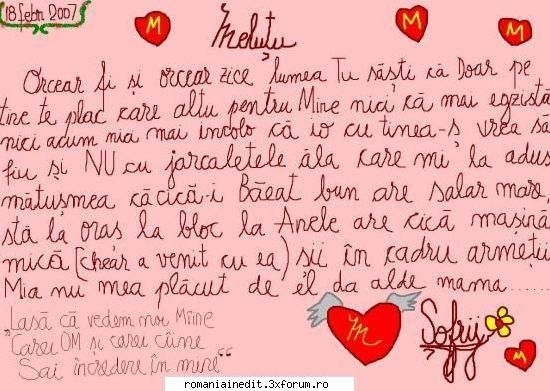 18 febr. 2007
M
M
M
Meluțu
Orcear fi și orcear zice lumea Tu săsti că Doar pe
tine te plac care altu pentru Mine nici că mai egzistă
nici acum nici mai incolo că io cu tinea-s vrea să
fiu și NU cu jarcalețele ăla care mi la adus
mătușmea căcică-i Băeat bun are salar mare
stă la oras la bloc la Anele are cică mașină
mică (chear a venit cu ea) sii în cadru armeții
Mia nu mea plăcut de el da alde mama......
Lasă că vedem noi Miine
"Carei OM și carei cîine
Sai încredere în mine"
M
Sofrij
M
romaniainedit.3xforum.ro